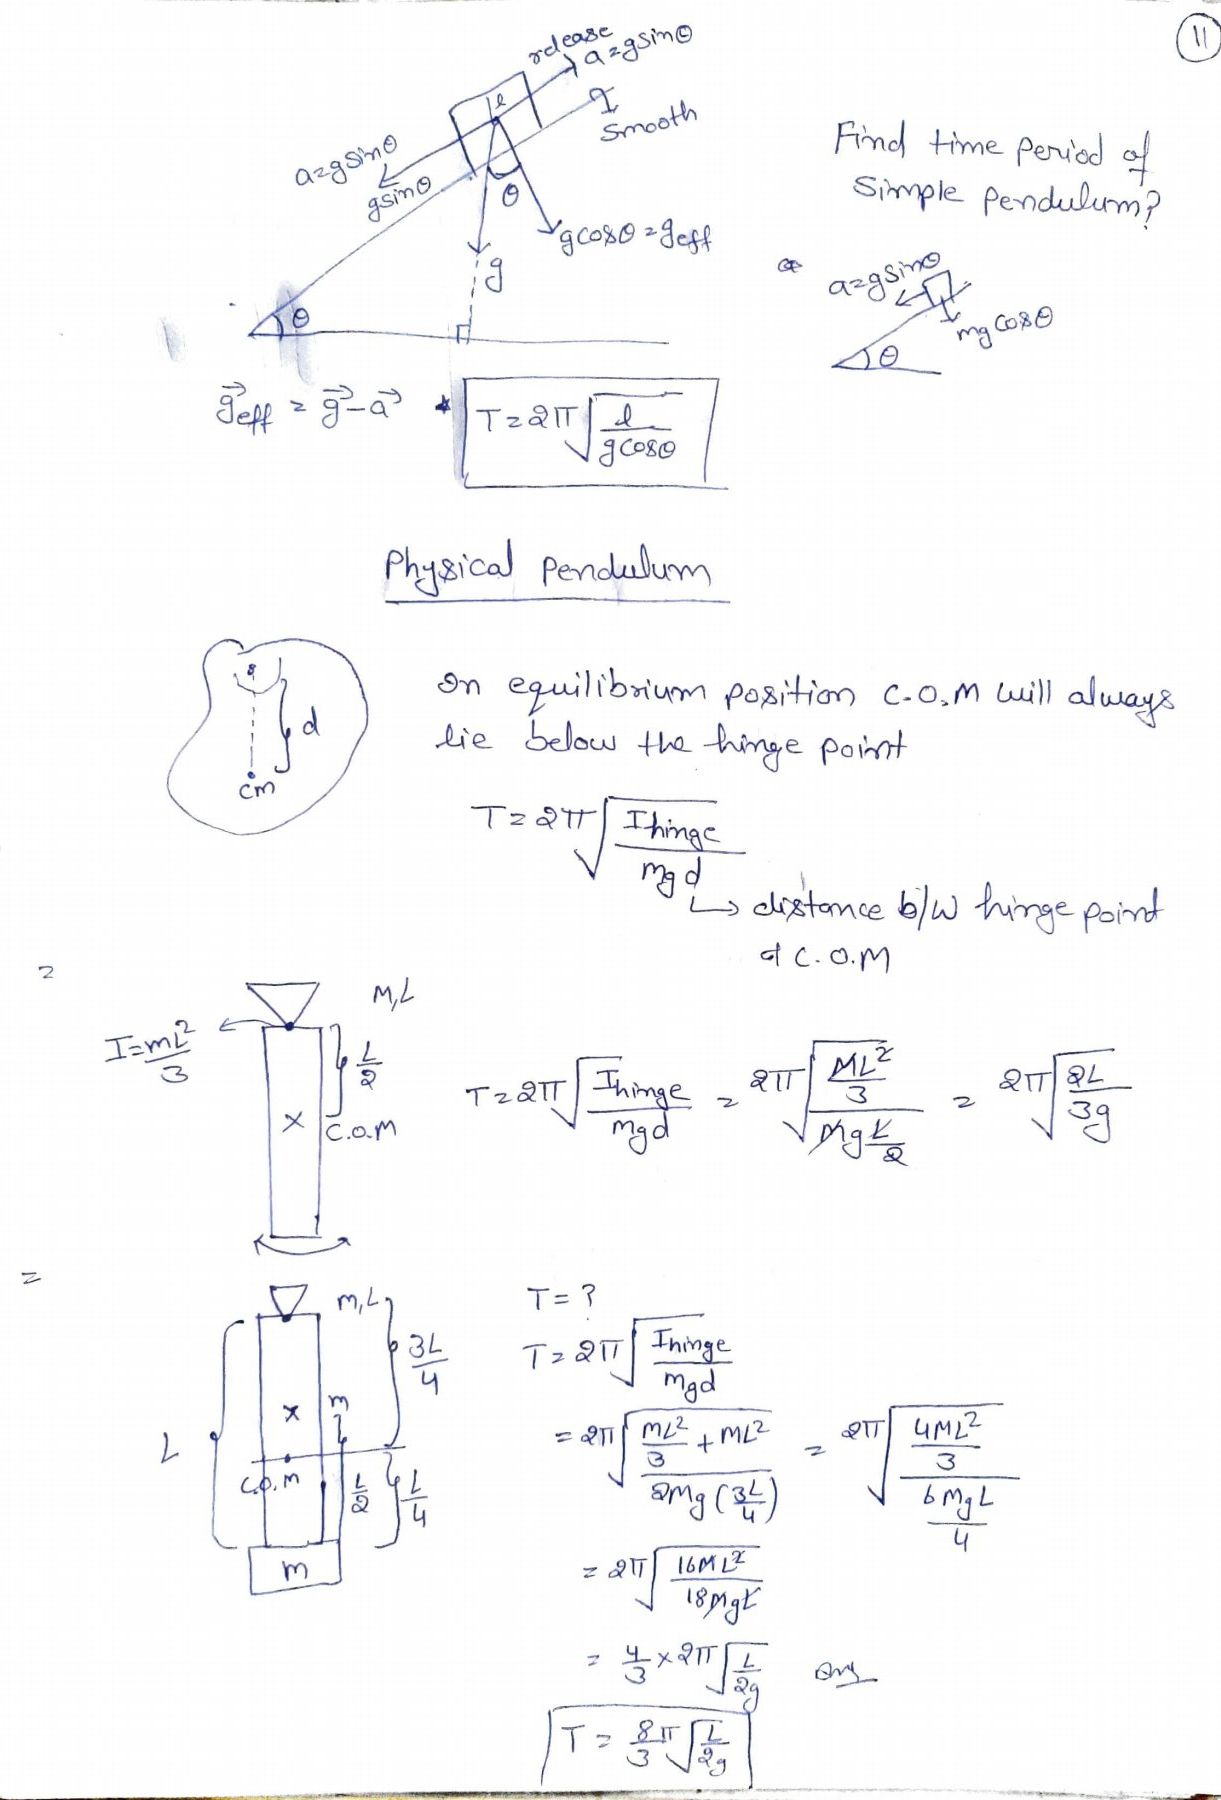 11
release
a=gsinθ
l
Smooth
a=gsinθ
gsinθ
θ
gcosθ=geff
g
θ
Find time period of
Simple pendulum?
a=gsinθ
mg cosθ
θ
g⃗eff = g⃗-a⃗ * T=2π√(l/gcosθ)
Physical pendulum
d
cm
In equilibrium position C.O.M will always
lie below the hinge point
T=2π√(Ihinge/mgd)
↳ distance b/w hinge point
& C.O.M
=
M,L
I=mL²/3
L/2
×
C.O.M
T=2π√(Ihinge/mgd) = 2π√((ML²/3)/(MgL/2)) = 2π√(2L/3g)
=
m,L
3L/4
L
×
m
C.O.M
L/2
L/4
m
T=?
T=2π√(Ihinge/mgd)
=2π√((ML²/3+ML²)/(2Mg(3L/4))) = 2π√((4ML²/3)/(6MgL/4))
=2π√(16ML²/18MgL)
= 4/3×2π√(L/2g) Ans
T= 8/3π√(L/2g)